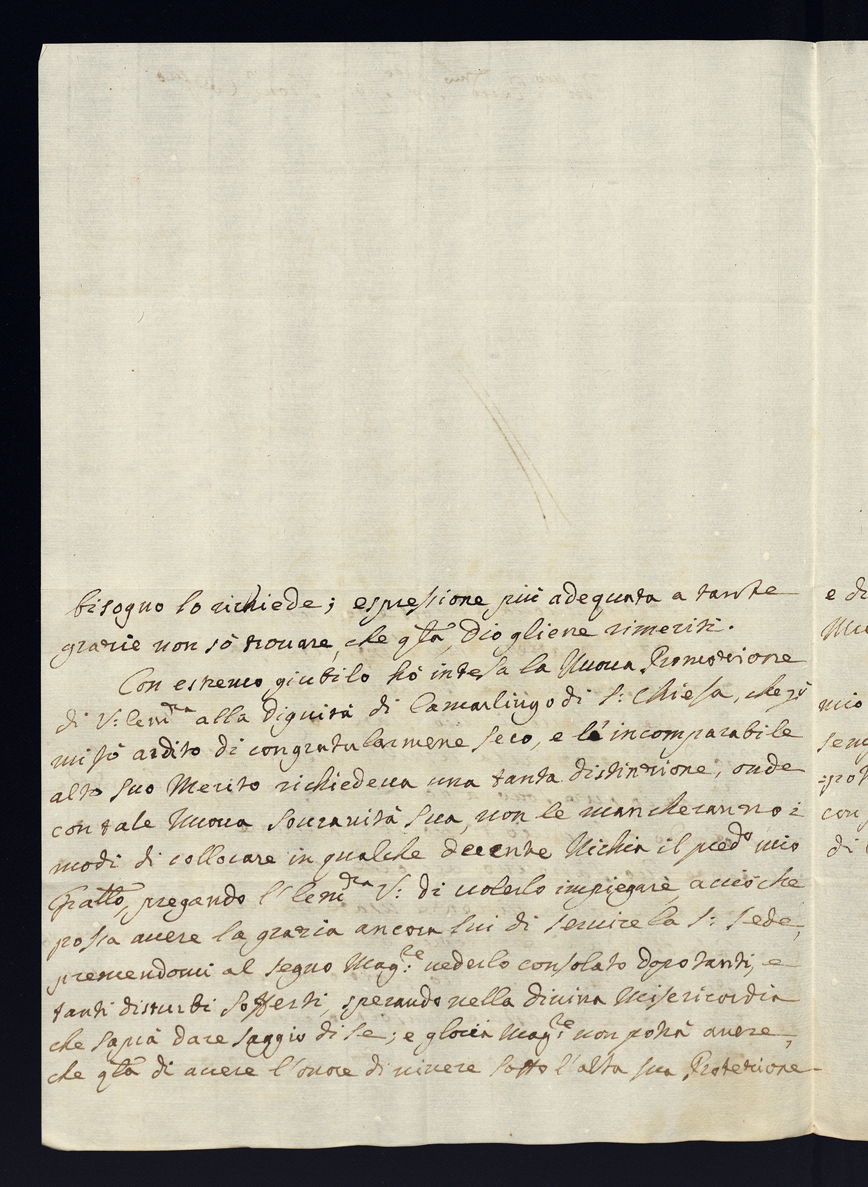 bisogno lo richiede; espressione più adequata a tante
grazie non sò trovare, che qta, Dio gliene rimeriti.
Con estremo giubilo hò intesa la Nuova Promozione
di V: Emza alla Dignità di Camarlingo di S: Chiesa, che
mi fò ardito di congratularmene seco, e l'incomparabile
alto suo Merito richiedeva una tanta distinzione, onde
con tale Nuova Sovranità Sua, non le mancheranno i
modi di collocare in qualche decente Nichia il pred:o mio
Fratto, pregando l'Emza V: di volerlo impiegare acciò che
possa avere la grazia ancora lui di servire la S: Sede,
premendomi al segno Mag:re vederlo consolato dopo tanti, e
tanti disturbi sofferti, sperando nella divina Misericordia
che saprà dare saggio di se; e gloria Mag:re non potrà avere,
che qta di avere l'onore di vivere sotto l'alta sua Protezione
e di
mio
con
di